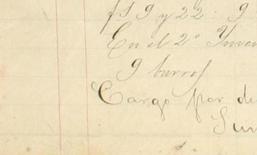 fs 9 y 22 : 9
En el 2º Inven
9 burros
Cargo por de
Sun